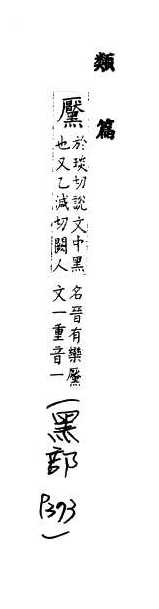 類篇
黶
於琰切說文中黑
也又乙減切闕人
名晉有欒黶
文一重音一
(黑部 P373)